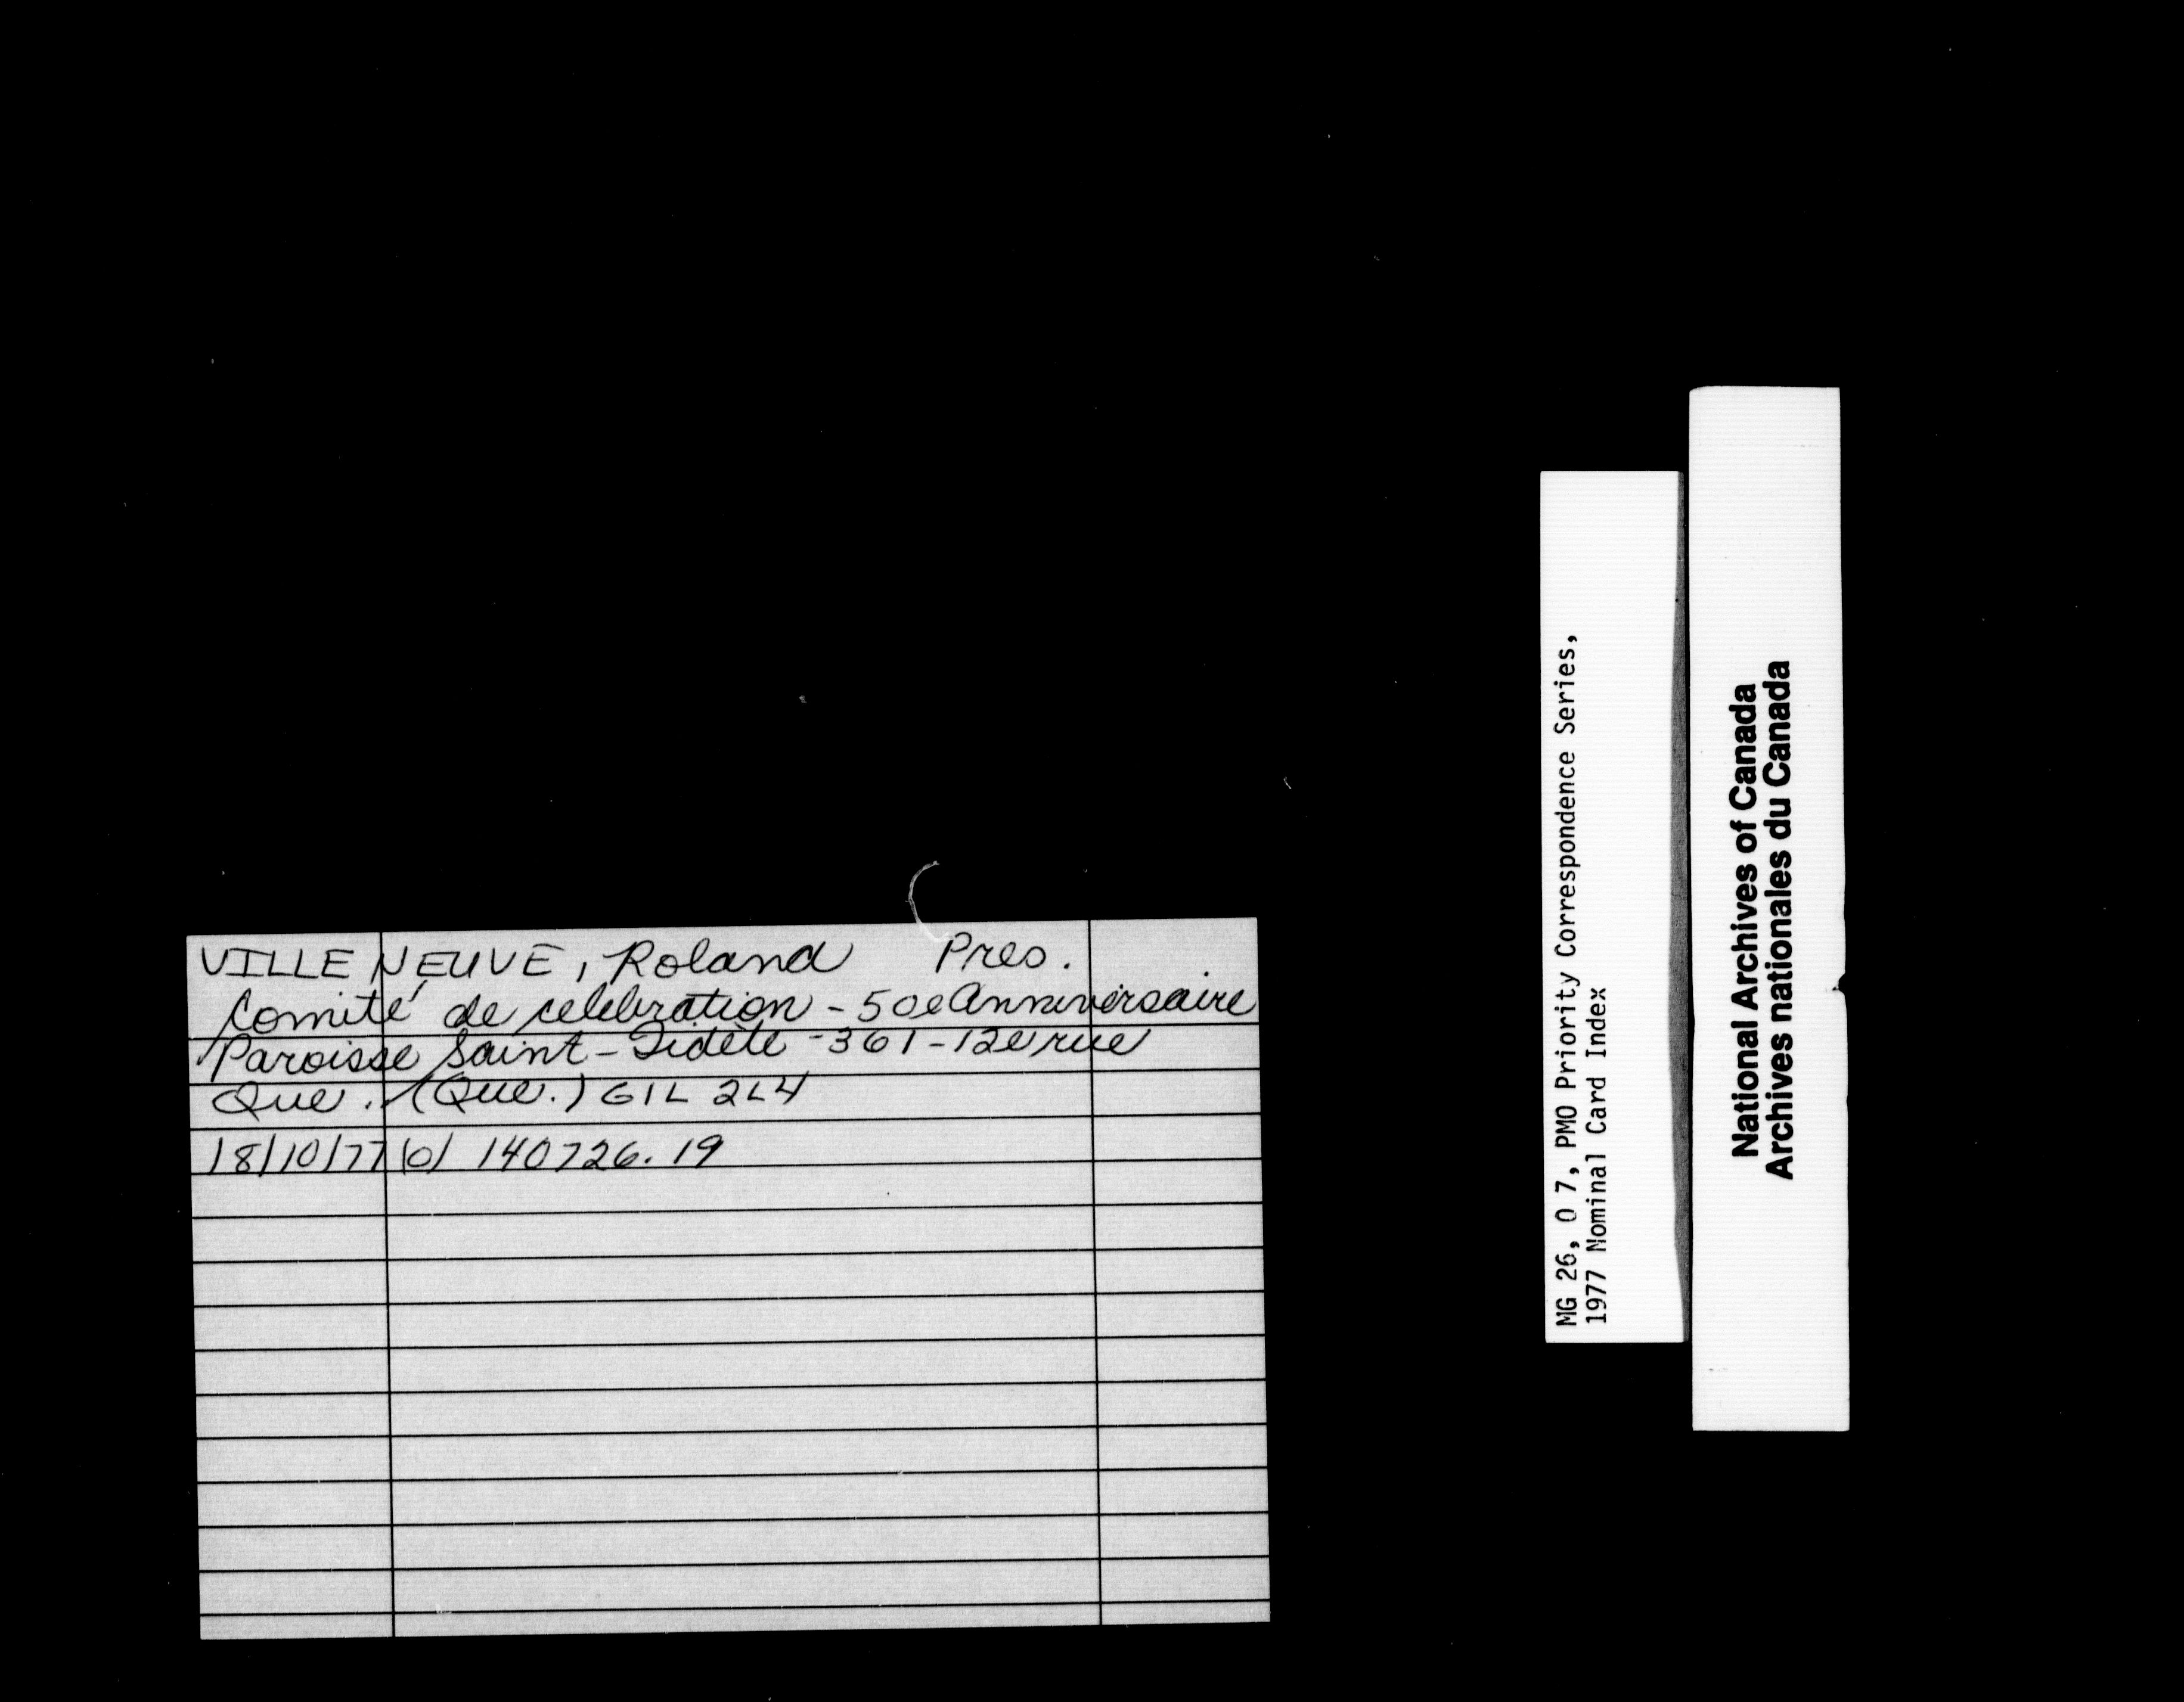 VILLENEUVE, Roland Pres.
Comité de celebration - 50e Anniversaire
Paroisse Saint-Fidèle - 361-12e rue
Que. (Que.) G1L 2L4
18/10/77 (0) 140726.19
MG 26, O 7, PMO Priority Correspondence Series,
1977 Nominal Card Index
National Archives of Canada
Archives nationales du Canada